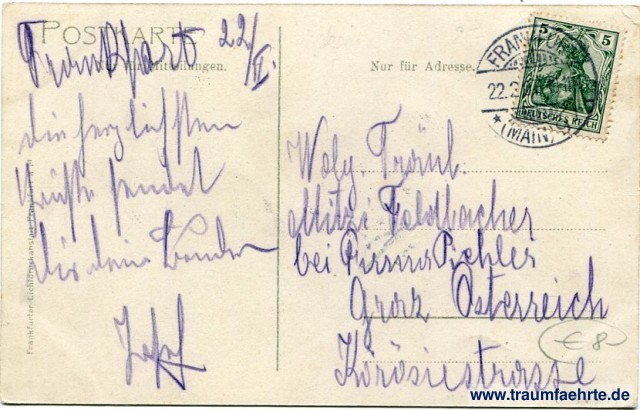 POSTKARTE
Frankfurt 22/II.
Nur für Mitteilungen.
die herzlichsten
Grüße sendet
dir dein Bruder
Josef
Nur für Adresse.
Wolg. Fräul.
Mitzi Feldbacher
bei Firma Pichler
Graz Österreich
Körösiestrasse
FRANKFURT
22.2.
* (MAIN)
5 5
DEUTSCHES REICH
Frankfurter Lichtdruckanstalt Frankfurt a. M.
€ 8
www.traumfaehrte.de